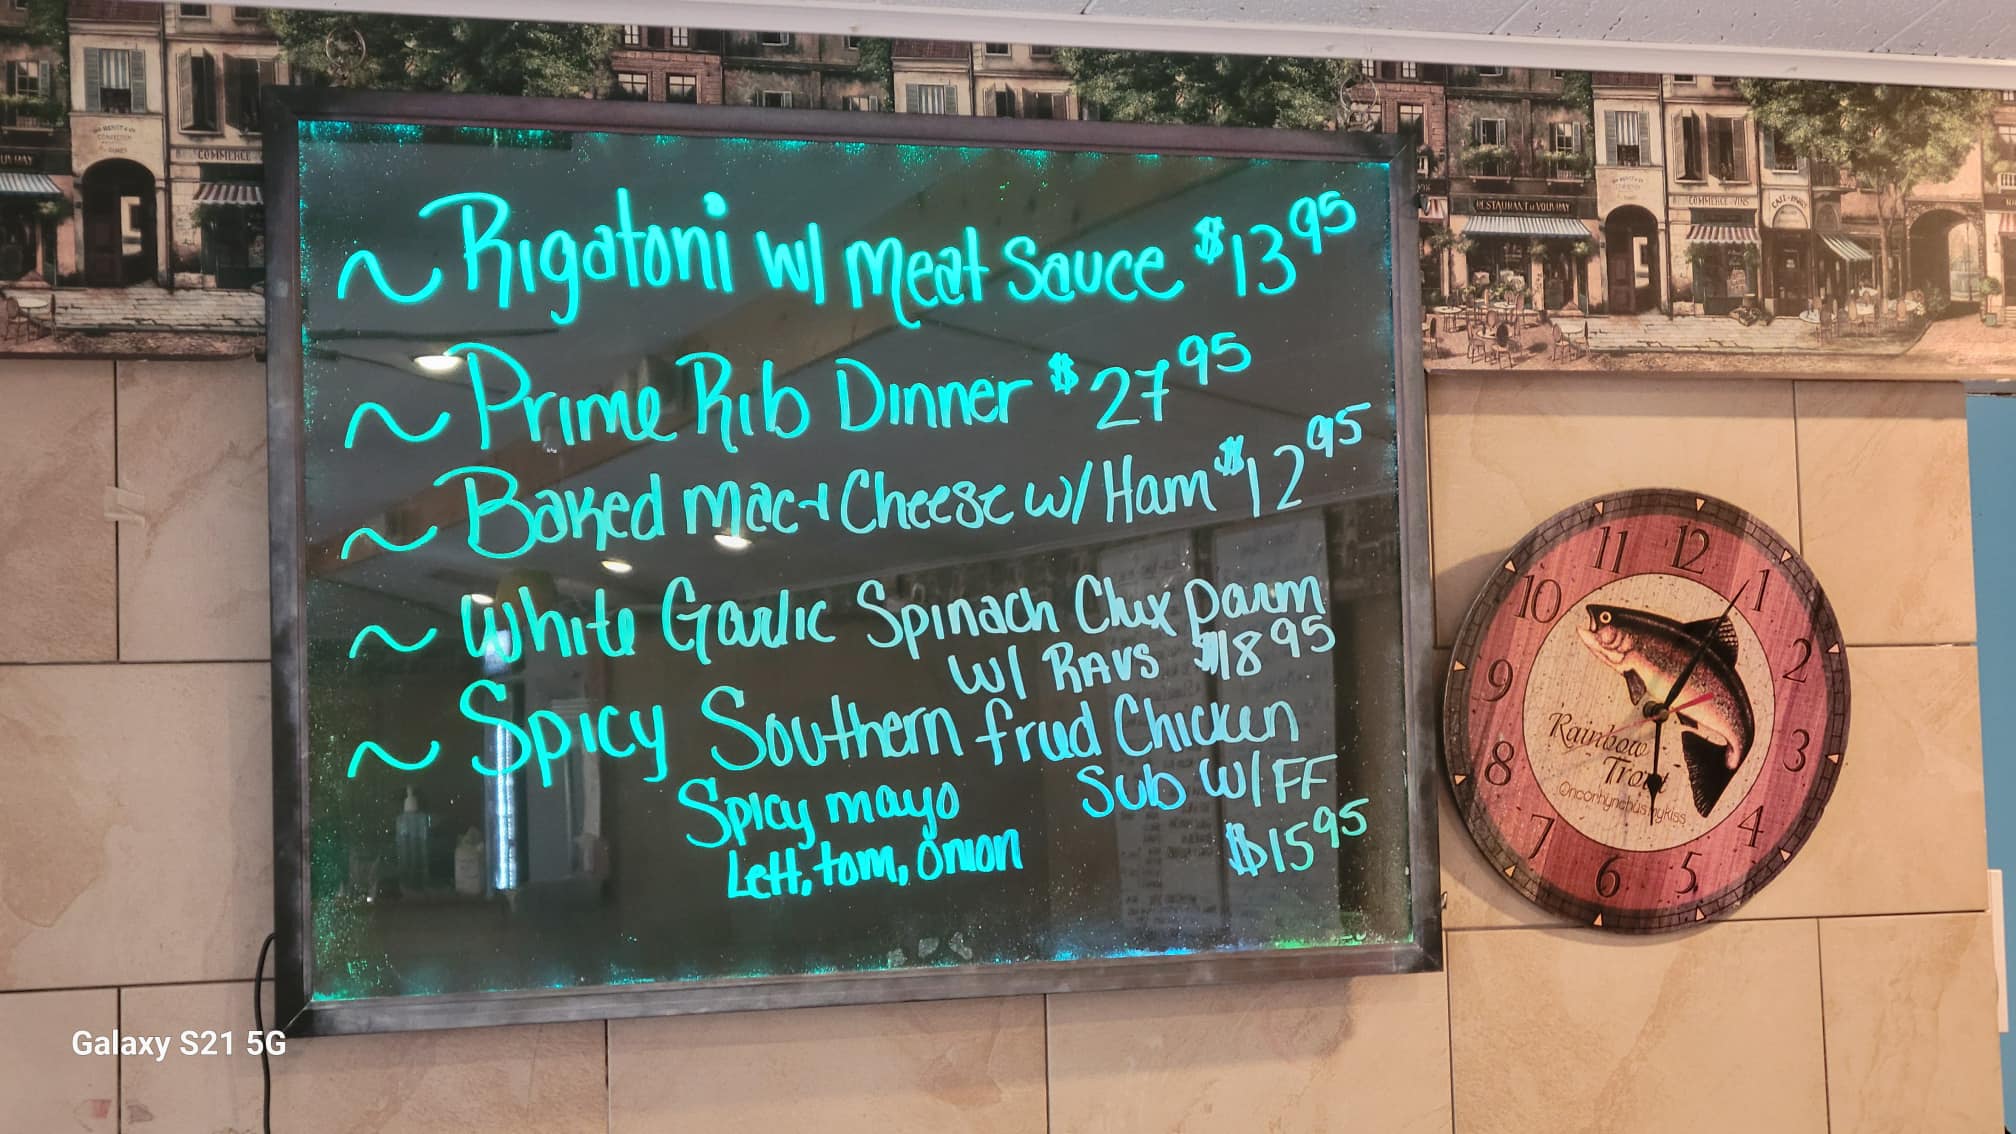 ~ Rigatoni w/ Meat Sauce $13 95
~ Prime Rib Dinner $27 95
~ Baked Mac + Cheese w/ Ham $12 95
~ White Garlic Spinach Chix Parm
w/ RAVS $18 95
~ Spicy Southern fried Chicken
Sub w/ FF
Spicy mayo
Lett, tom, onion
$15 95
COMMERCE
RESTAURANT
COMMERCE VINS
11 12 1
10 2
9 3
8 4
7 6 5
Rainbow
Trout
Oncorhynchus mykiss
Galaxy S21 5G